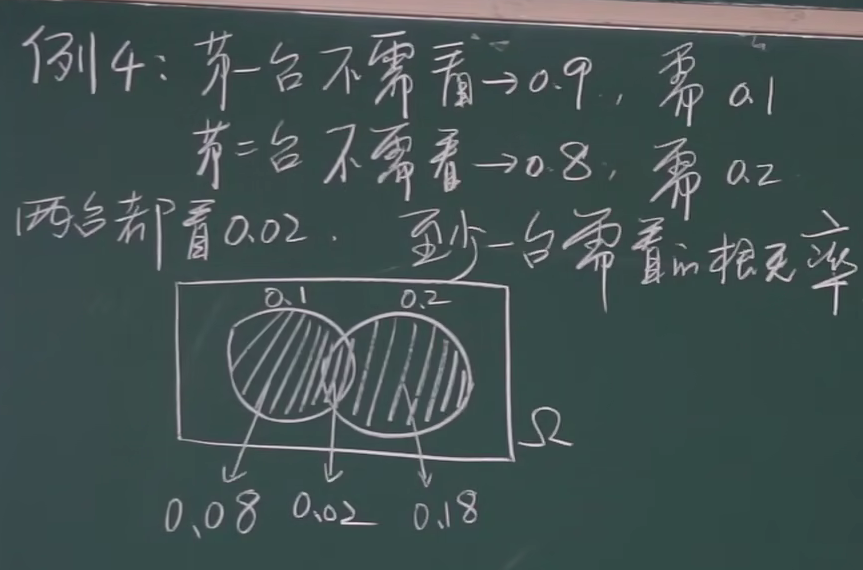 例4: 第一台不需看→0.9, 需0.1
第二台不需看→0.8, 需0.2
两台都看0.02. 至少一台需看的概率
0.1 0.2
Ω
0.08 0.02 0.18